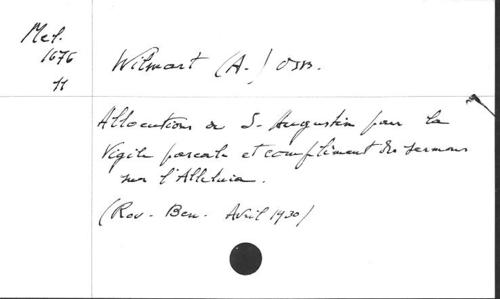 Mel.
1676
11
Wilmart (A.) OSB.
Allocutions de S. Augustin pour la
Vigile pascale et complément des sermons
sur l'Alleluia.
(Rev. Ben. Avril 1930)